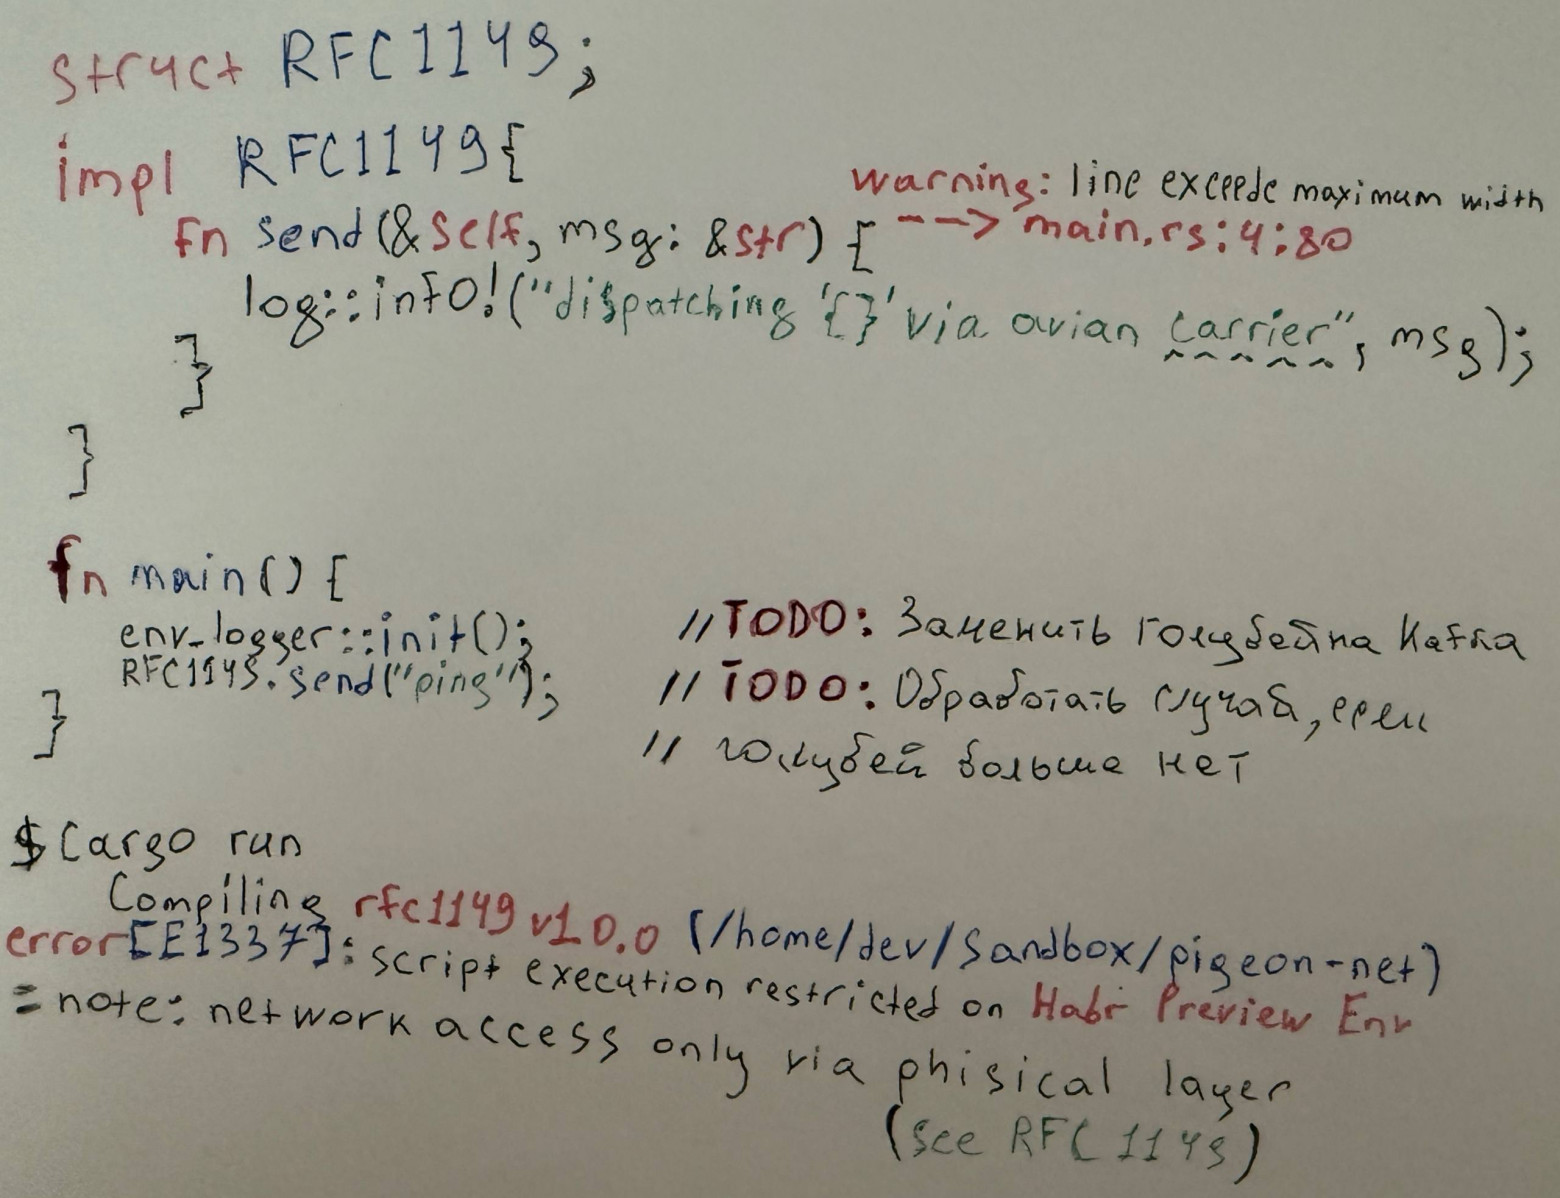 struct RFC1149;
impl RFC1149{
warning: line exceede maximum width
fn send(&self, msg: &str) { ---> main.rs:4:80
log::info!("dispatching '{}' via avian carrier", msg);
}
}
fn main() {
env_logger::init(); //TODO: Заменить голубей на Kafka
RFC1149.send("ping"); // TODO: Обработать случай, если
} // голубей больше нет
$ Cargo run
Compiling rfc1149 v1.0.0 (/home/dev/sandbox/pigeon-net)
error[EE1337]: script execution restricted on Habr Preview Env
= note: network access only via phisical layer
(see RFC 1149)